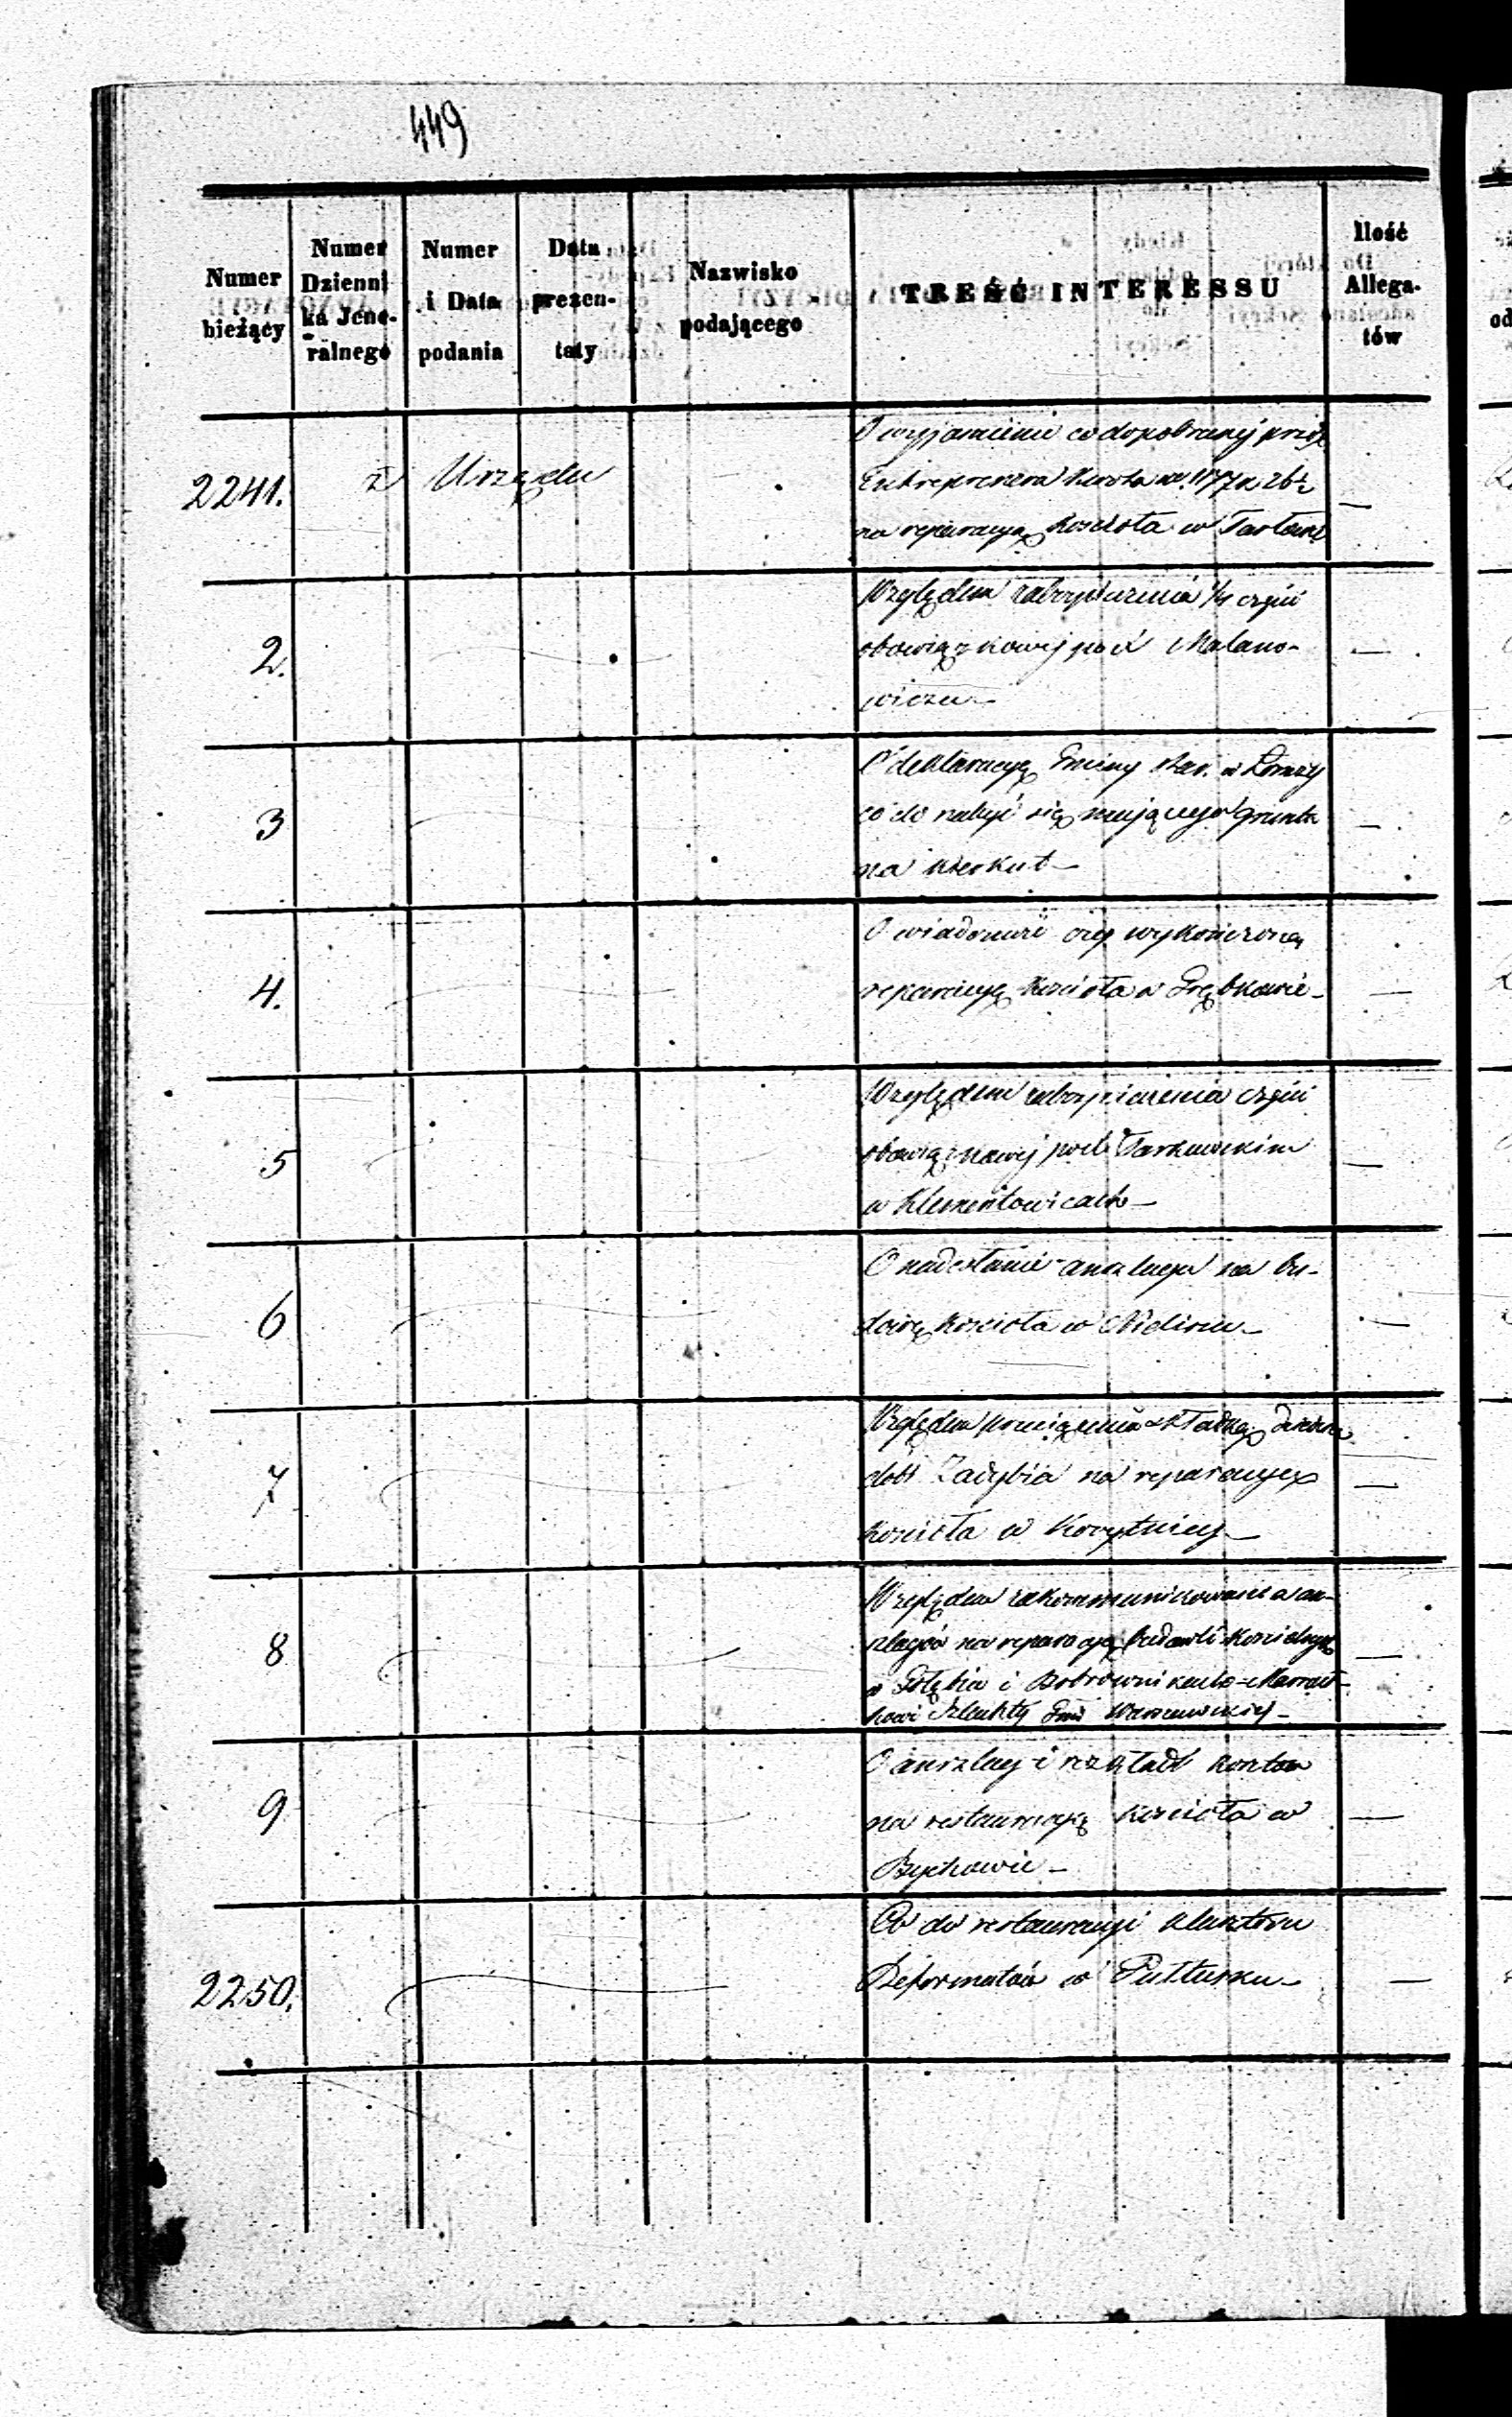 449
Numer bieżący
Numer Dzienni ka Jene- ralnego
Numer i Data podania
Data prezen- taty
Nazwisko podającego
TREŚĆ INTERESSU
Ilość Allega- tów
2241. z Urzędu
O wyjaśnienie co do pobranej przez
Entreprenera kwota
na reparacyą kościoła w Tarłowie
2.
Względem zabezpieczenia 1/4 części
obowiązkowej pod Malano-
wiczu –
3
O deklaracyę Gminy w Łomży
co do nabyć się mającego gruntu
na –
4.
O wiadomość czy wykończoną
reparacyę kościoła w Grębkowie –
5
Względem zabezpieczenia części
obowiązkowej pod Tarkowskim
w Klementowicach –
6
O nadesłanie anszlagu na bu-
dowę kościoła w Nieliszu –
7
Względem pociągnienia składką
dóbr Zadybia na reparacyę
kościoła w Korytnicy –
8
Względem zakommunikowania an-
szlagów na reparacyę budowli kościelnych
w Gołębiu i Bobrownikach – Marszał-
kowi Szlachty Gub Warszawskiej –
9
O anszlag i rozkład kosztów
na restauracyę kościoła w
Bychawie –
2250.
Co do restauracyi klasztoru
Reformatów w Pułtusku –